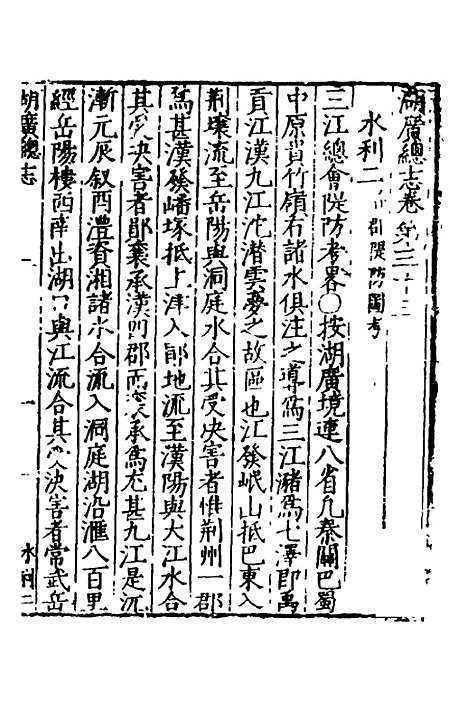 湖廣總志卷第三十三
水利二 郡隄防圖考
三江總會隄防考畧〇按湖廣境連八省凡秦關巴蜀
中原貴竹嶺右諸水俱注之導爲三江瀦爲七澤即禹
貢江漢九江沱潜雲夢之故區也江發岷山抵巴東入
荆壤流至岳陽與洞庭水合其受决害者惟荆州一郡
爲甚漢發嶓塚抵上津入鄖地流至漢陽與大江水合
其受决害者鄖襄承漢四郡而襄承爲尤甚九江是沅
漸元辰叙酉澧資湘諸水合流入洞庭湖沿滙八百里
經岳陽樓西南出湖口與江流合其受决害者常武岳
湖廣總志 一 水利二